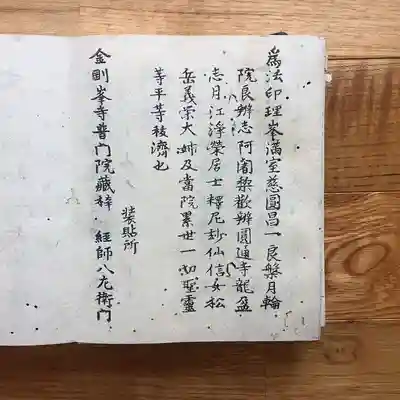 為法印理峯滿室慈圓昌一良盤月輪
院良辨志阿闍梨歡辨圓通寺龍盛
志月江淨榮居士釋尼妙仙信女松
岳義榮大姉及當院累世一切聖靈
等平等拔濟也
装貼所
金剛峯寺普門院藏梓 経師八左衛門